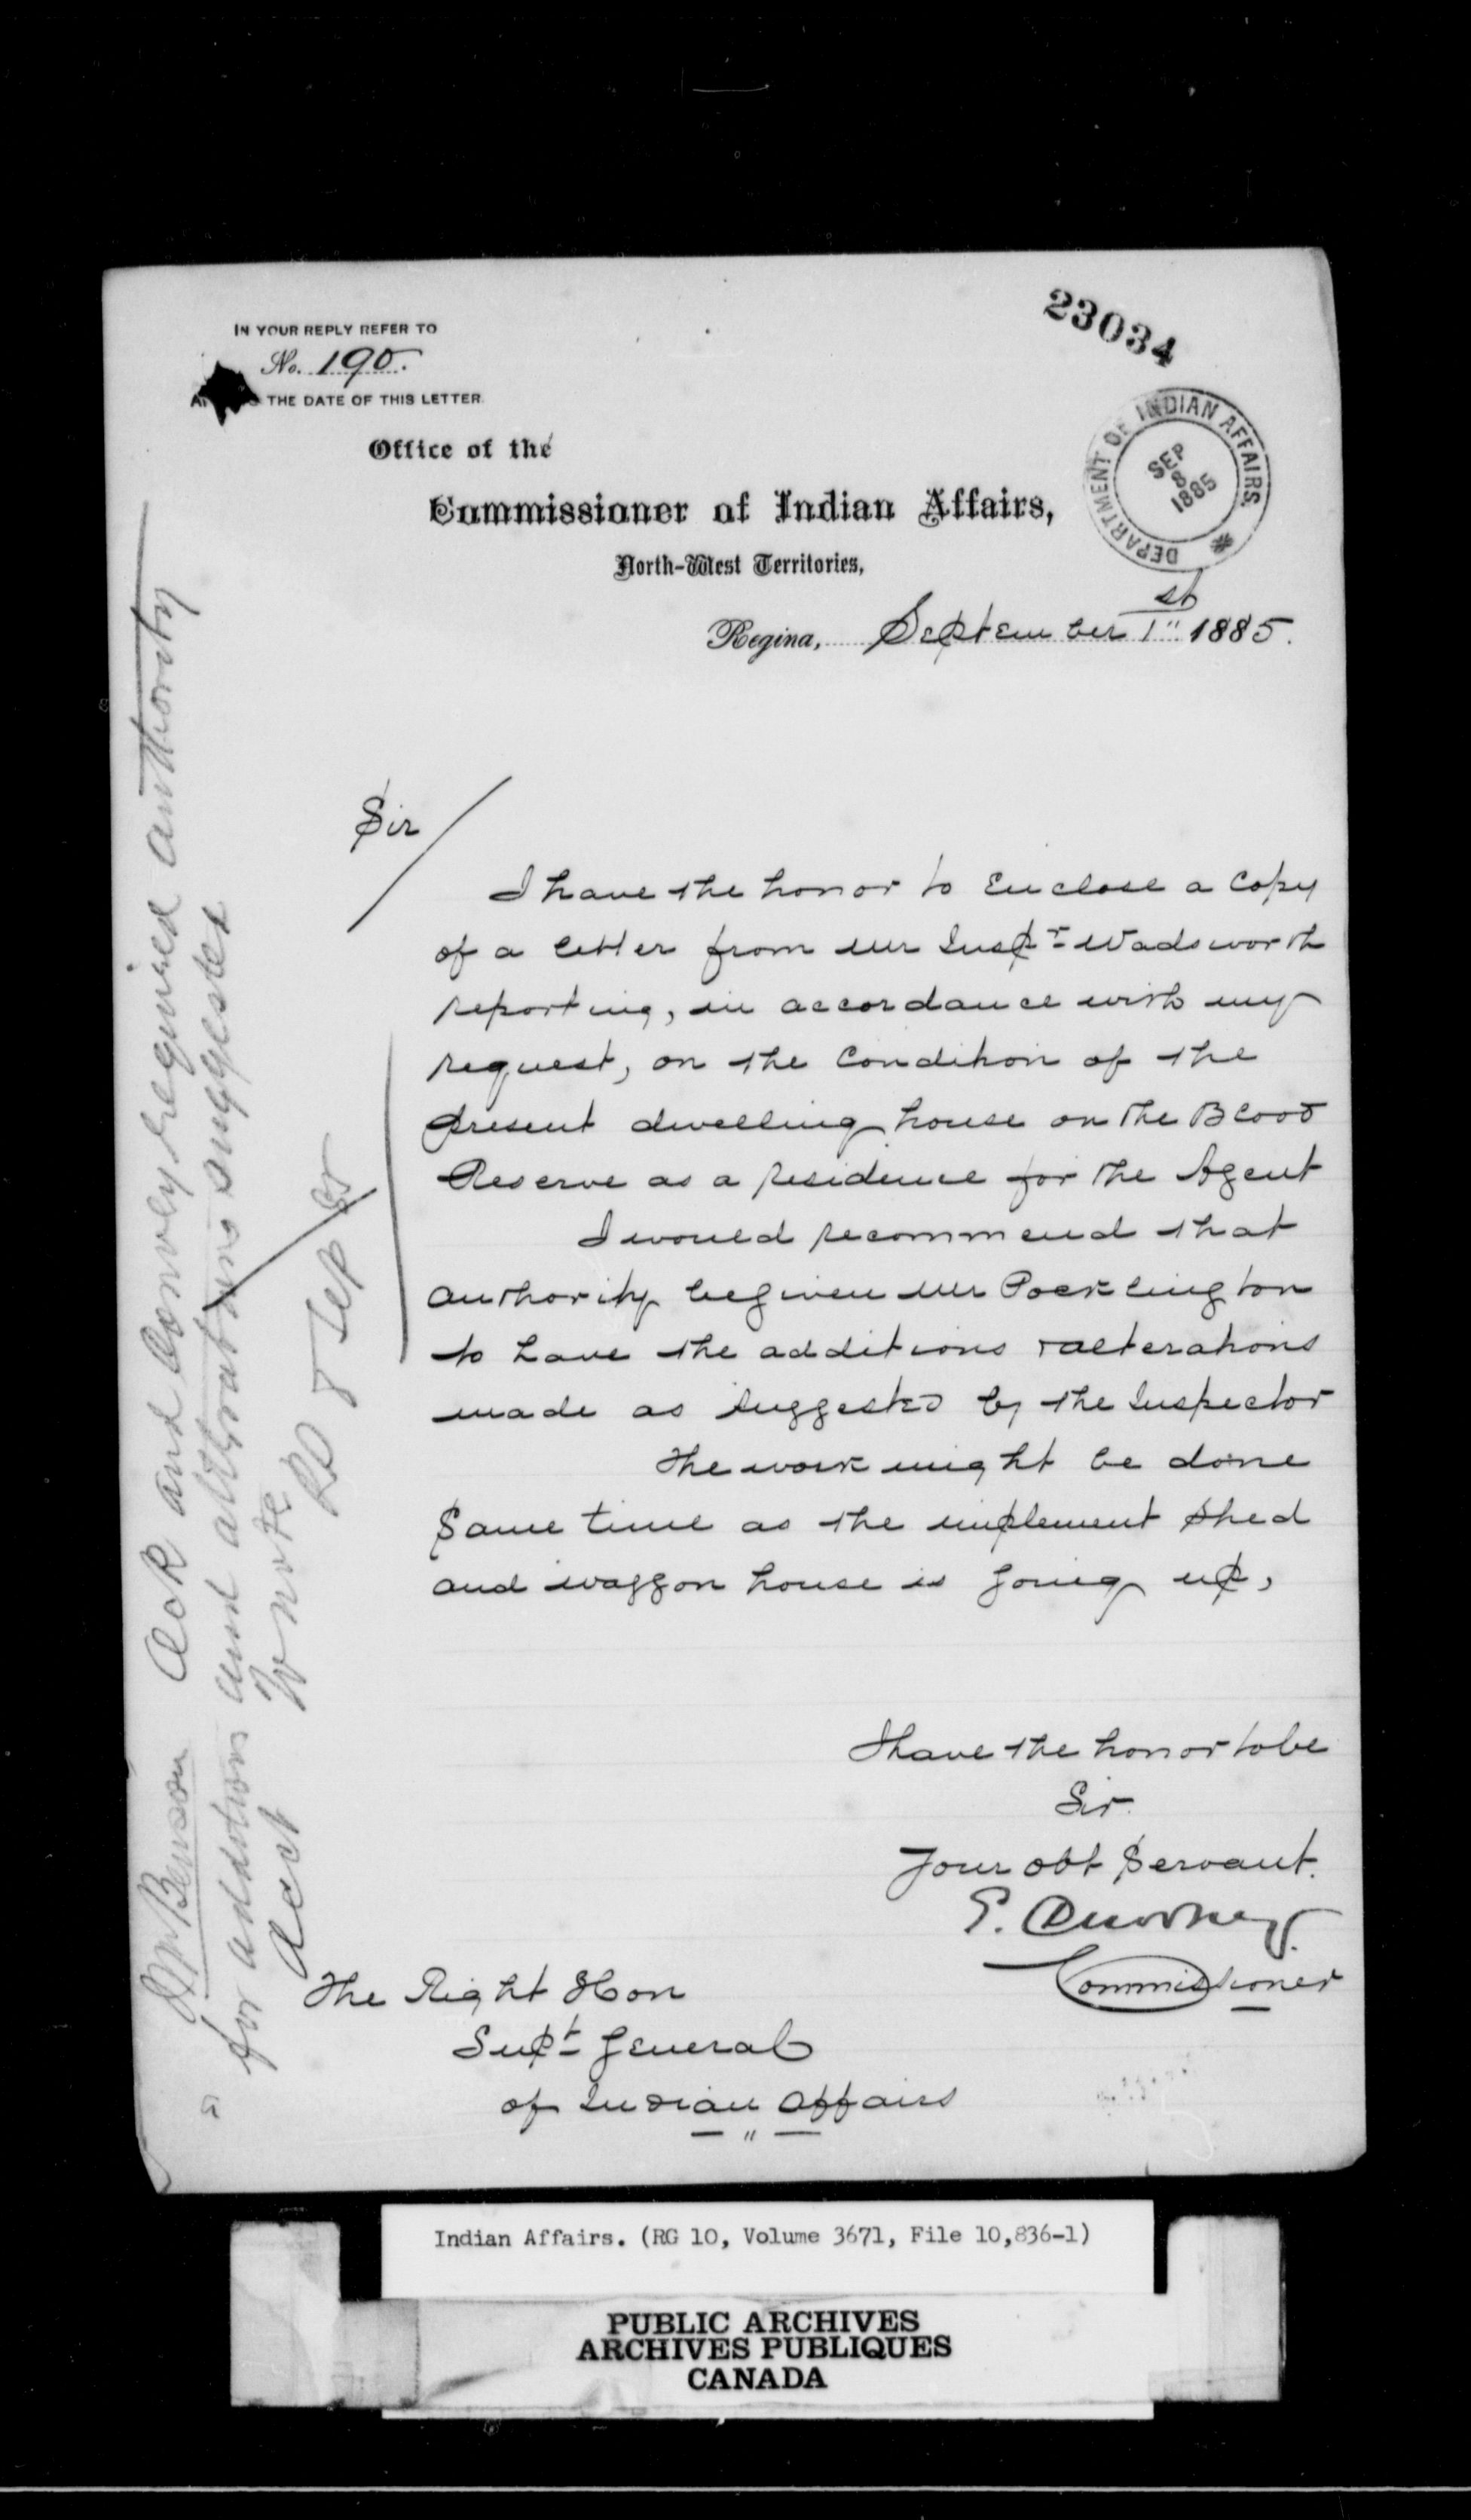 IN YOUR REPLY REFER TO
No. 190.
THE DATE OF THIS LETTER.
23034
DEPARTMENT OF INDIAN AFFAIRS
SEP
8
1885
Office of the
Commissioner of Indian Affairs,
North-West Territories,
Regina, September 1st 1885.
Sir
I have the honor to enclose a copy
of a letter from Mr Inspr Wadsworth
reporting, in accordance with my
request, on the condition of the
present dwelling house on the Blood
Reserve as a residence for the Agent
I would recommend that
authority be given Mr Pocklington
to have the additions & alterations
made as suggested by the Inspector
The work might be done
same time as the implement shed
and waggon house is going up,
I have the honor to be
Sir
Your obt Servant.
E. Dewdney
Commissioner
The Right Hon
Supt General
of Indian Affairs
Mr Benson Ack and Convey required authority
for additions and alterations suggested
8 Sep 85
Indian Affairs. (RG 10, Volume 3671, File 10,836-1)
PUBLIC ARCHIVES
ARCHIVES PUBLIQUES
CANADA